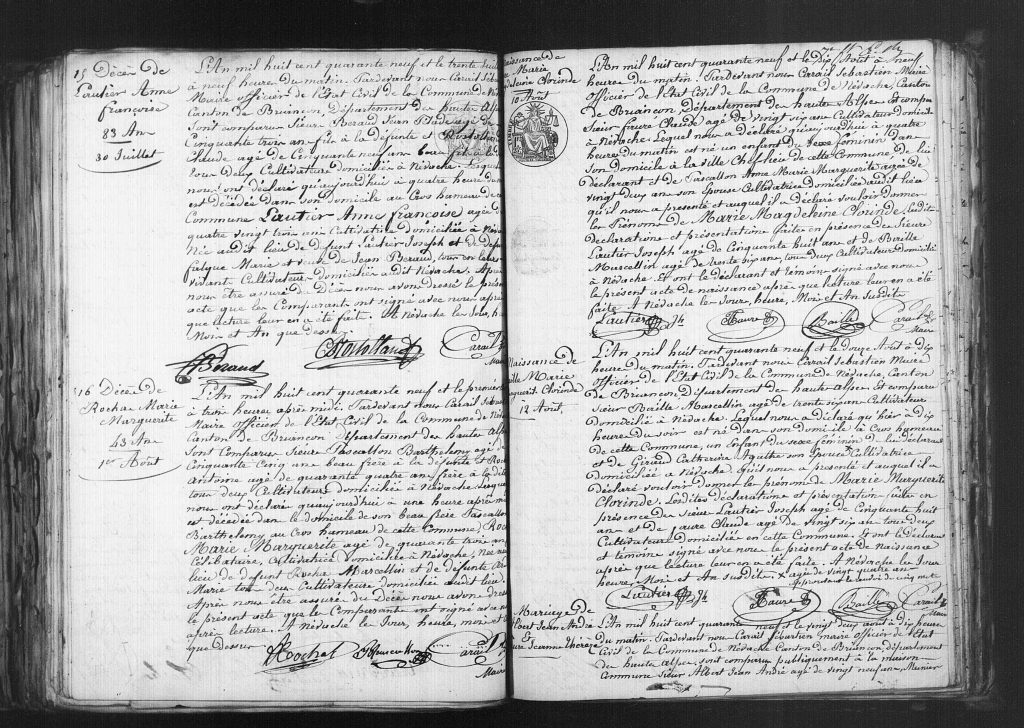 15 Décès de
Lautier Anne
françoise
83 Ans
30 Juillet
L'An mil huit cent quarante neuf et le trente
à neuf heures du matin. Pardevant nous Carail
Maire officier de l'Etat Civil de la Commune de
Canton de Briançon Département des hautes Alpes
Sont comparus Sieurs Beraud Jean
Cinquante trois ans fils à la défunte et Rostolland
Claude agé de Cinquante neuf ans beau fils
tous deux Cultivateurs domiciliés à Névache. Lesquels
nous ont déclaré qu'aujourd'hui à quatre heures
est décédée dans son domicile au Cros hameau de
Commune Lautier Anne françoise agée de
quatre vingt trois ans Cultivatrice domiciliée à
Née audit lieu de défunt Lautier Joseph et de
Marie et veuve de Jean Beraud, tous
vivant Cultivateurs domiciliés audit Névache. Après
nous être assuré du Décès nous avons dressé le présent
acte que les Comparants ont signé avec nous après
que lecture leur en a été faite. A Névache les Jour,
Mois et An que dessus.
Béraud CRostolland Carail
Maire
16 Décès de
Roche Marie
Marguerite
43 Ans
1er Août
L'An mil huit cent quarante neuf et le premier
à trois heures après midi. Pardevant nous Carail
Maire officier de l'Etat Civil de la Commune de
Canton de Briançon Département des hautes Alpes
Sont Comparus Sieurs Pascallon Barthelemy agé
Cinquante Cinq ans beau frère à la défunte et
Antoine agé de quarante quatre ans frère
tous deux Cultivateurs domiciliés à Névache Lesquels
nous ont déclaré qu'aujourd'hui à une heure après
est décédée dans le domicile de son beau frère Pascallon
Barthelemy au Cros hameau de cette Commune
Marie Marguerite agée de quarante trois ans
Célibataire, Cultivatrice domiciliée à Névache, Née
lieu de défunt Roche Marcellin et de défunte
Marie tous deux Cultivateurs domiciliés audit lieu.
Après nous être assuré du Décès nous avons
le présent acte que les Comparants ont signé avec
après lecture. A Névache les Jour, heure, mois et
que dessus
ARoche Carail
Maire
Naissance
de Marie
Clorinde
10 Août
L'An mil huit cent quarante neuf et le Dix Août à Neuf
heures du matin. Pardevant nous Carail Sébastien Maire
officier de l'Etat Civil de la Commune de Névache, Canton
de Briançon Département des hautes Alpes est comparu
Sieur Faure Claude agé de vingt six ans Cultivateur domicilié
à Névache. Lequel nous a déclaré qu'aujourd'hui à quatre
heures du matin est né un enfant du Sexe féminin Dans
Son domicile à la ville Chef lieu de cette Commune, de lui
Déclarant et de Pascallon Anne Marie Marguerite agée de
vingt deux ans son Epouse Cultivatrice Domiciliée audit lieu
qu'il nous a présenté et auquel il a Déclaré vouloir donner
les Prénoms de Marie Magdeleine Clorinde. Lesdites
Déclarations et présentations faites en présence des Sieurs
Lautier Joseph agé de Cinquante huit ans et de Baille
Marcellin agé de trente six ans, tous deux Cultivateurs domiciliés
à Névache. Et ont le déclarant et témoins signé avec nous
le présent acte de naissance après que lecture leur en a été
faite. A Névache les Jour, heure, Mois et An Susdits
Lautier Jh Faure Baille Carail
Maire
Naissance de
Marie
Clorinde
12 Août.
L'An mil huit cent quarante neuf et le Douze Août à dix
heures du matin. Pardevant nous Carail Sébastien Maire
officier de l'Etat Civil de la Commune de Névache, Canton
de Briançon, Département des hautes Alpes. Est comparu
Sieur Baille Marcellin agé de trente six ans Cultivateur
Domicilié à Névache. Lequel nous a déclaré qu'hier à dix
heures du soir est né dans son domicile à Cros hameau
de cette Commune, un Enfant du sexe féminin de lui déclarant
et de Giraud Catherine Agathe son Epouse Cultivatrice
Domiciliée à Névache Qu'il nous a présenté et auquel il a
Déclaré vouloir Donner les prénoms de Marie Marguerite
Clorinde. Lesdites déclarations et présentation faites en
présence des Sieurs Lautier Joseph agé de Cinquante huit
ans et de faure Claude agé de vingt six ans tous deux
Cultivateurs Domiciliés en cette Commune. Et ont le déclarant
et témoins signé avec nous le présent acte de Naissance
après que lecture leur en a été faite. A Névache les Jour
heure, Mois et An susdits. x agée de vingt quatre ans
Lautier Jh Faure Baille Carail
Maire
Mariage de
Albert Jean André
&
Jeanne Thérèse
L'An mil huit cent quarante neuf et le vingt deux août à dix heures
du matin. Pardevant nous Carail Sébastien maire officier de l'Etat
Civil de la Commune de Névache Canton de Briançon, département
des hautes Alpes. Sont comparus publiquement à la maison
Commune Sieur Albert Jean André agé de vingt neuf ans, Meunier